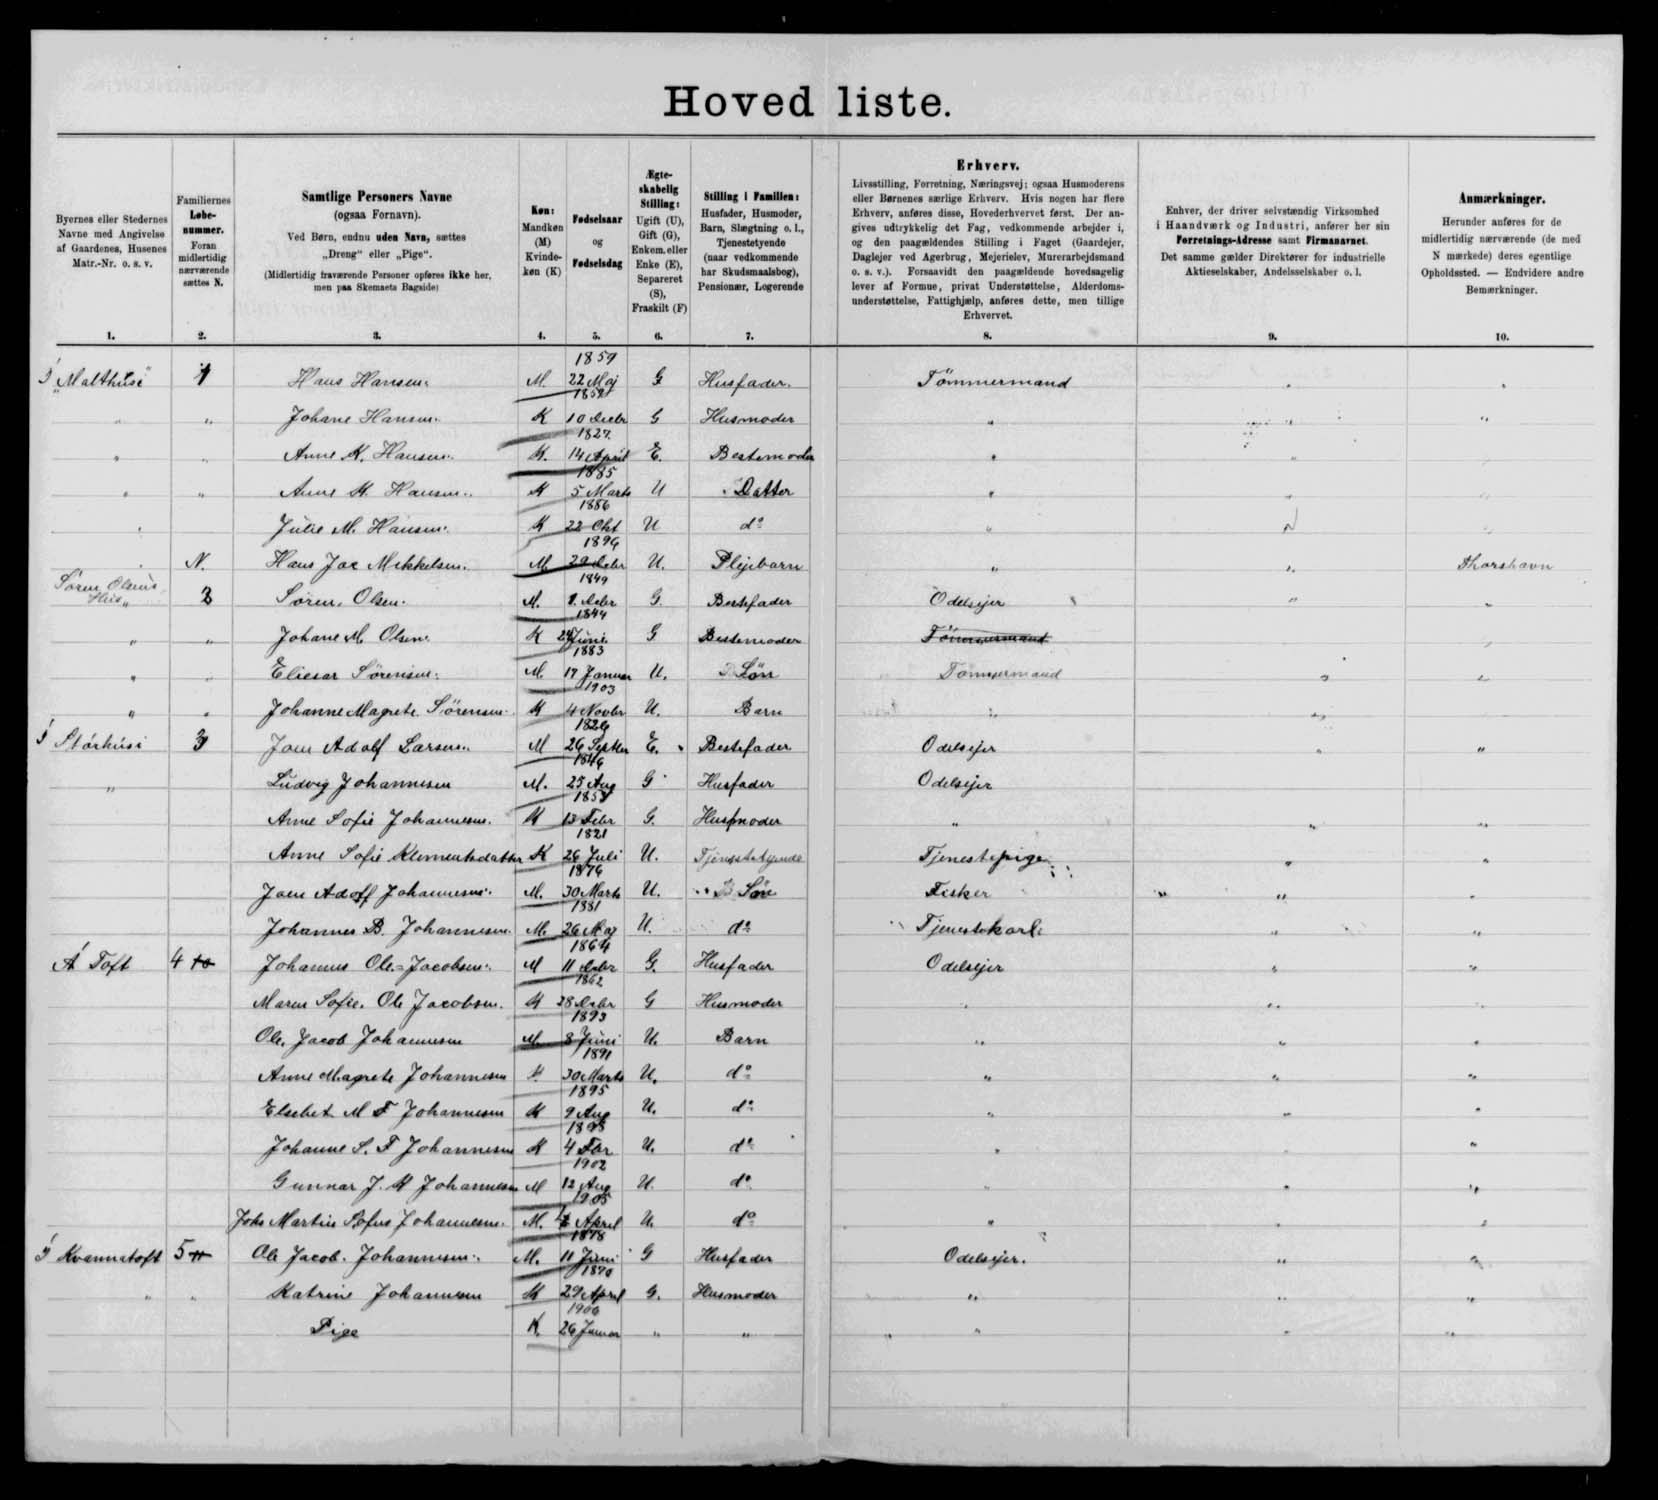 Hoved liste.
Byernes eller Stedernes
Navne med Angivelse
af Gaardenes, Husenes
Matr.-Nr. o. s. v.
1.
Familiernes
Løbe-
nummer.
Foran
midlertidig
nærværende
sættes N.
2.
Samtlige Personers Navne
(ogsaa Fornavn).
Ved Børn, endnu uden Navn, sættes
„Dreng“ eller „Pige“.
(Midlertidig fraværende Personer opføres ikke her,
men paa Skemaets Bagside)
3.
Køn:
Mandkøn
(M)
Kvinde-
køn (K)
4.
Fødselsaar
og
Fødselsdag
5.
Ægte-
skabelig
Stilling:
Ugift (U),
Gift (G),
Enkem. eller
Enke (E),
Separeret
(S),
Fraskilt (F)
6.
Stilling i Familien:
Husfader, Husmoder,
Barn, Slægtning o. l.,
Tjenestetyende
(naar vedkommende
har Skudsmaalsbog),
Pensionær, Logerende
7.
Erhverv.
Livsstilling, Forretning, Næringsvej; ogsaa Husmoderens
eller Børnenes særlige Erhverv. Hvis nogen har flere
Erhverv, anføres disse, Hovederhvervet først. Der an-
gives udtrykkelig det Fag, vedkommende arbejder i,
og den paagældendes Stilling i Faget (Gaardejer,
Daglejer ved Agerbrug, Mejerielev, Murerarbejdsmand
o. s. v.). Forsaavidt den paagældende hovedsagelig
lever af Formue, privat Understøttelse, Alderdoms-
understøttelse, Fattighjælp, anføres dette, men tillige
Erhvervet.
8.
Enhver, der driver selvstændig Virksomhed
i Haandværk og Industri, anfører her sin
Forretnings-Adresse samt Firmanavnet.
Det samme gælder Direktører for industrielle
Aktieselskaber, Andelsselskaber o. l.
9.
Anmærkninger.
Herunder anføres for de
midlertidig nærværende (de med
N mærkede) deres egentlige
Opholdssted. — Endvidere andre
Bemærkninger.
10.
1859
Í „Malthúsi“ 1 Hans Hansen. M. 22 Maj G Husfader. Tömmermand
„ „ Johane Hansen. K 10 Decbr G Husmoder „
1827.
„ „ Anne K. Hansen. K. 14 April E. Bestemoder „
1885
„ „ Anne M. Hansen. K 5 Marts U Datter „
1886
Julie M. Hansen. K 22 Okt U do „
N. Hans Jac Mikkelsen. M. Decbr U. Plejebarn „ Thorshavn
1849
Sören Olsens
Hús „ 2 Sören Olsen. M. Decbr G. Bestefader Odelsejer
1844
„ „ Johane M. Olsen. K Juni G Bestemoder Tömmermand
1883
„ Eliesar Sörensen. M. 17 Januar U. Sön Tömmermand
1903
„ Johanne Magrete Sörensen. K 4 Novbr U. Barn „
Í Stórhúsi 3 Joen Adolf Larsen. M 26 Septbr E. Bestefader Odelsejer „
1846
„ Ludvig Johannesen M. 25 Aug G Husfader Odelsejer
Anne Sofie Johannesen. K 13 Febr G. Husmoder „
1821
Anne Sofie Klementsdatter K 26 Juli U. Tjenestetyende Tjenestepige
1876
Joen Adolf Johannesen. M. 30 Marts U. Sön Fisker „
1881
Johannes D. Johannesen. M. 26 Maj U. do Tjenestekarl
1864
Á Toft 4 Johannes Ole=Jacobsen. M 11 Decbr G. Husfader Odelsejer
1862
Maren Sofie. Ole Jacobsen. K 28 Decbr G Husmoder
1893
Ole Jacob Johannesen M. 8 Juni U. Barn „
1891
Anne Magrete Johannesen K 30 Marts U. do „
1895
Elsebet M F Johannesen K 9 Aug U. do „
Johanne S. F Johannesen K 4 Fbr U. do „
1902
Gunnar J. M Johannesen M 12 Aug U. do „
1905
Johs Martin Sofus Johannesen. M. April U. do „
1878
Í Kvannatoft 5 Ole Jacob. Johannesen. M. 11 Juni G Husfader Odelsejer.
1870
„ „ Katrine Johannesen K 29 April G. Husmoder „
1906
Pige K. 26 Januar „ „ „